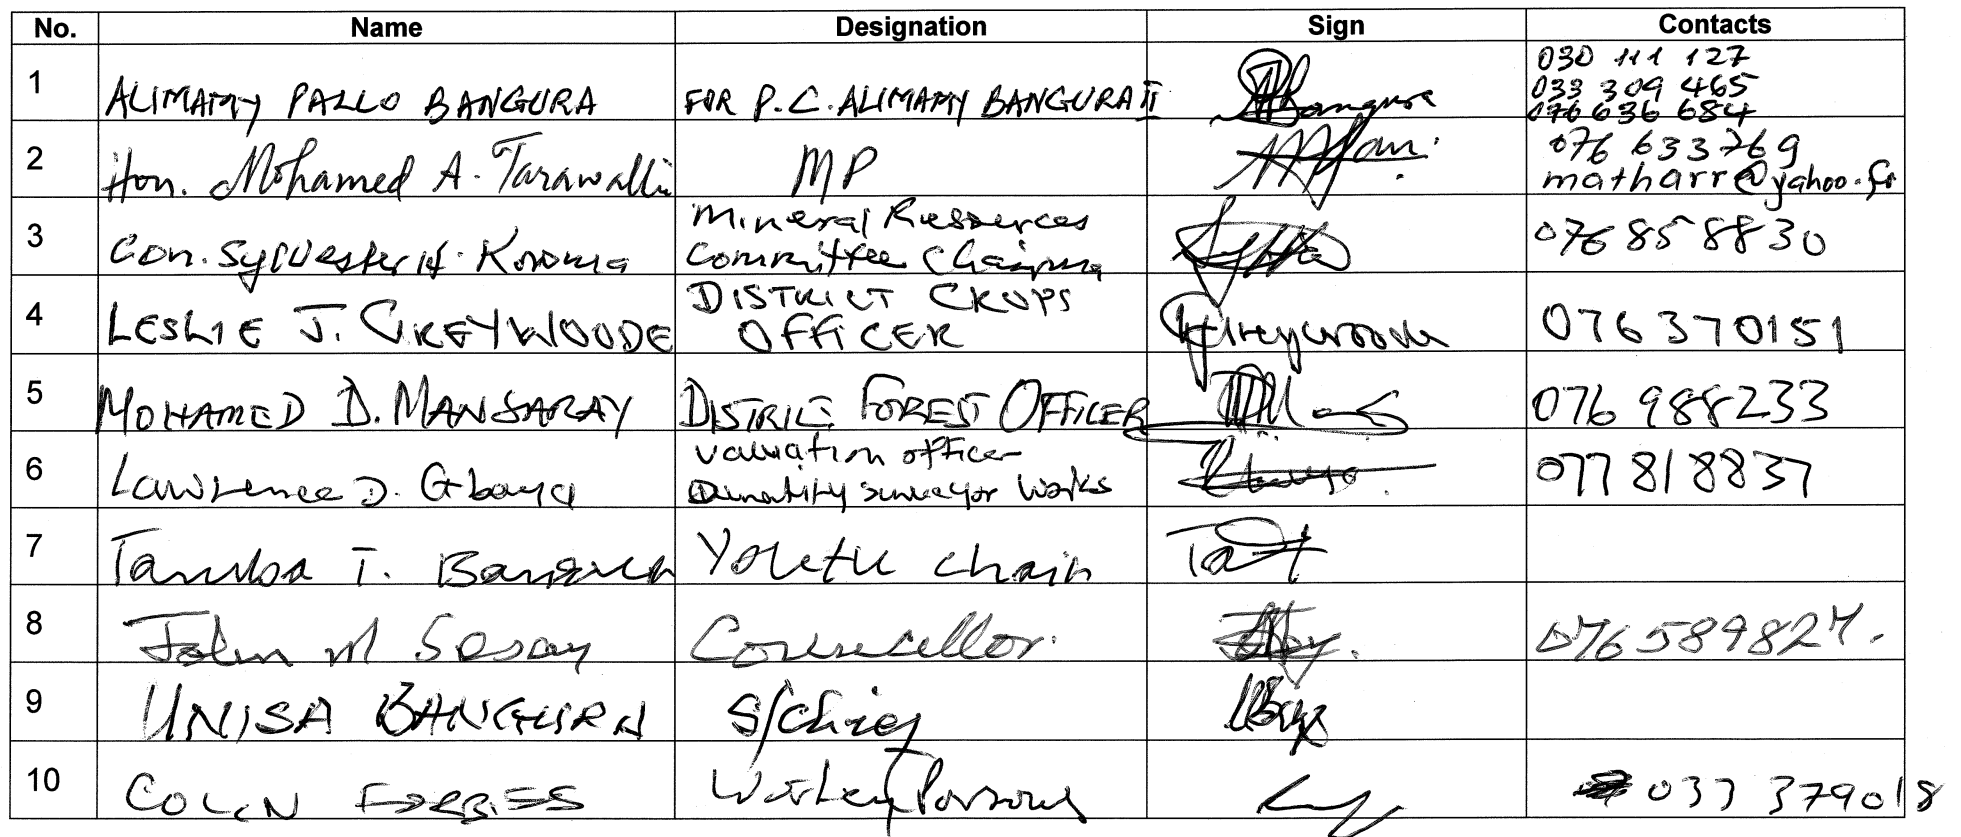 No. Name Designation Sign Contacts
1 ALIMAMY PALLO BANGURA FOR P.C. ALIMAMY BANGURA II Bangura 030 111 127
033 309 465
076 636 684
2 Hon. Mohamed A. Tarawallie MP 076 633769
matharr@yahoo.fr
3 Con. Sylvester H. Koroma Mineral Resources
Committee Chairman 076 858830
4 LESLIE J. GREYWOODE DISTRICT CROPS
OFFICER Greywoode 076370151
5 MOHAMED D. MANSARAY DISTRICT FOREST OFFICER 076 988233
6 Lawrence D. Gbaya Valuation officer
Quantity surveyor Works 077818837
7 Bangura Youth Chair
8 John M Sesay Councellor. 076589827.
9 UNISA BANGURA S/Chief
10 COLIN FORBES Worley Parsons 033 379018